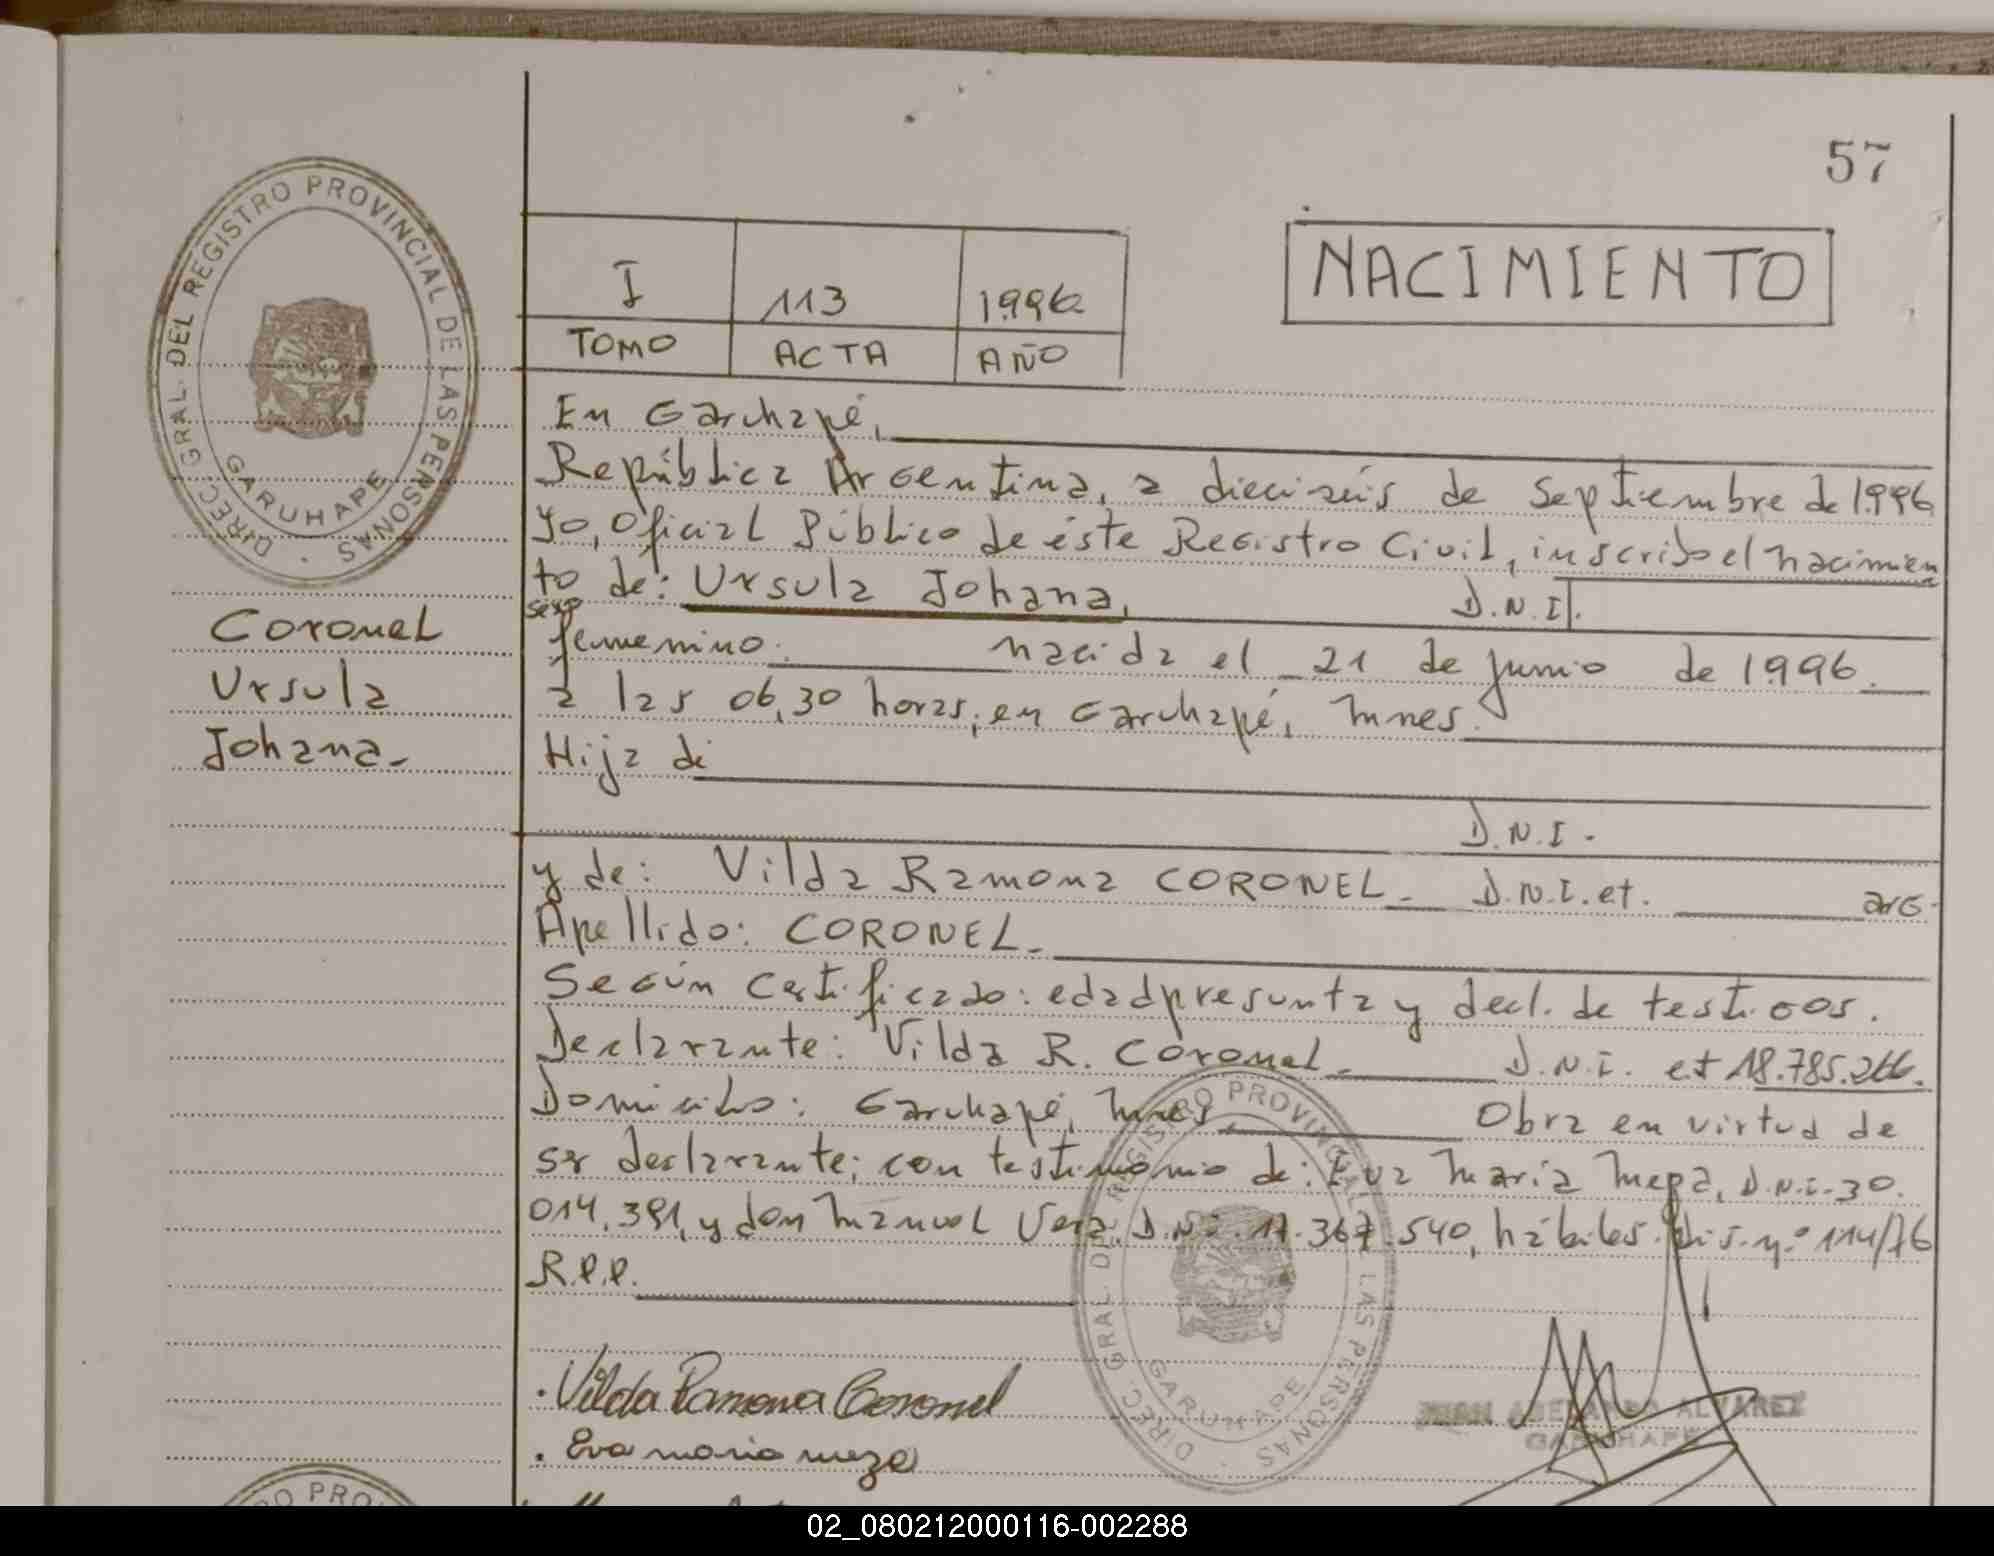 57
DIREC. GRAL. DEL REGISTRO PROVINCIAL DE LAS PERSONAS
GARUHAPE
NACIMIENTO
I 113 1996
TOMO ACTA AÑO
Coronel
Ursula
Johana.
En Garuhapé,
República Argentina, a dieciséis de Septiembre de 1.996
yo, Oficial Público de éste Registro Civil, inscribo el nacimien
to de: Ursula Johana, D.N.I.
sexo
femenino. nacida el 21 de junio de 1996.
a las 06,30 horas, en Garuhapé, Mnes.
Hija de
D.N.I.
y de: Vilda Ramona CORONEL. D.N.I. et. arg.
Apellido: CORONEL.
Según Certificado: edad presunta y decl. de testigos.
Declarante: Vilda R. Coronel. D.N.I. et 18.785.266.
Domicilio: Garuhapé, Mnes Obra en virtud de
ser declarante; con testimonio de: Eva María Meza, D.N.I. 30.
014.391, y don Manuel Vera, D.N.I. 17.367.540, hábiles. Dis. nº 114/76
R.P.P.
Vilda Ramona Coronel
Eva maria meza
JUAN ALVAREZ
GARUHAPE
DIREC. GRAL. DEL REGISTRO PROVINCIAL DE LAS PERSONAS
GARUHAPE
02_080212000116-002288